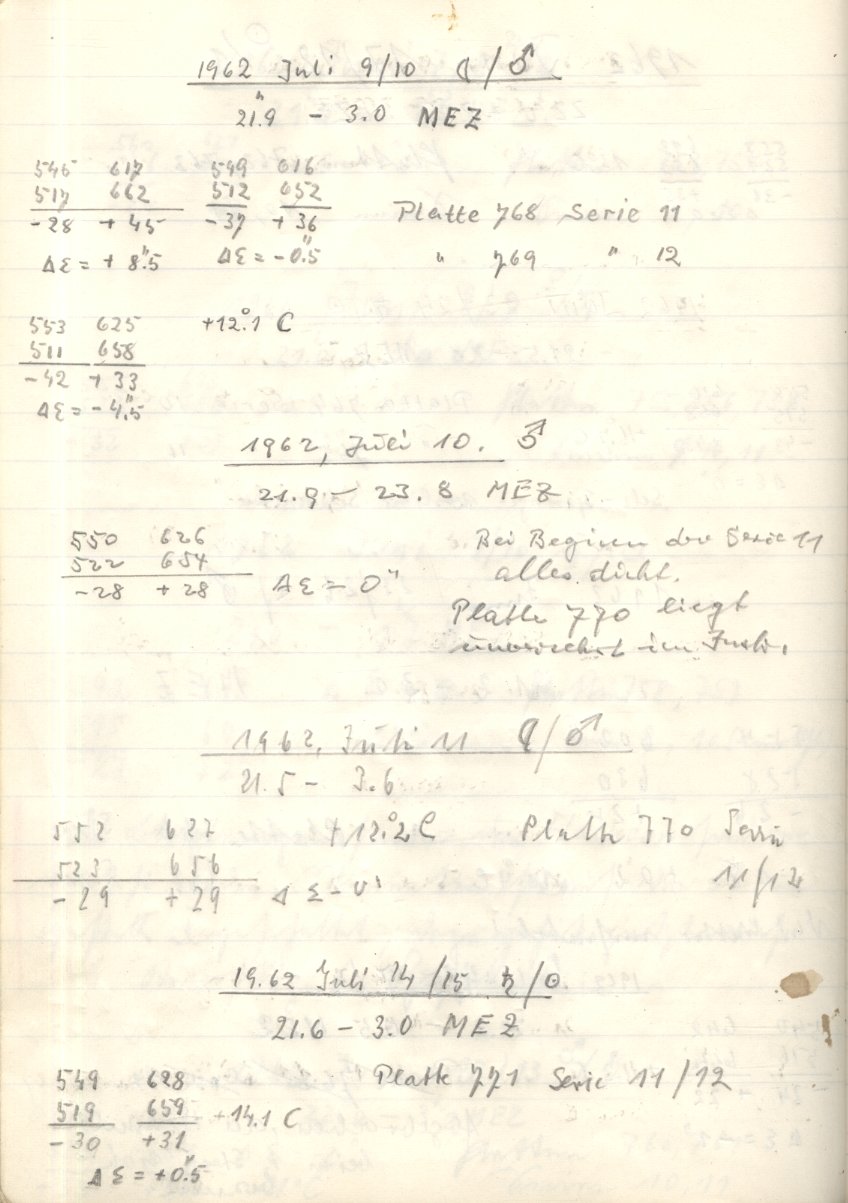 1962 Juli 9/10 ☾/♂
21.9 – 3.0 MEZ
546 617 549 616
517 662 512 652
-28 + 45 -37 + 36
Platte 768 Serie 11
ΔΣ = + 8".5 ΔΣ = -0".5
" 769 " 12
553 625 +12°.1 C
511 658
-42 + 33
ΔΣ = -4".5
1962, Juli 10. ♂
21.9 – 23.8 MEZ
550 626
522 654
-28 + 28 ΔΣ = 0"
Bei Beginn der Serie 11
alles dicht.
Platte 770 liegt
im
1962, Juli 11 /♂
21.5 – 3.6
552 627 + 12°.2 C Platte 770 Serie
523 656 11/12
-29 + 29 ΔΣ - 0"
19.62 Juli 14/15 ♄/☉
21.6 – 3.0 MEZ
549 628 Platte 771 Serie 11/12
519 659 +14.1 C
-30 +31
ΔΣ = +0".5